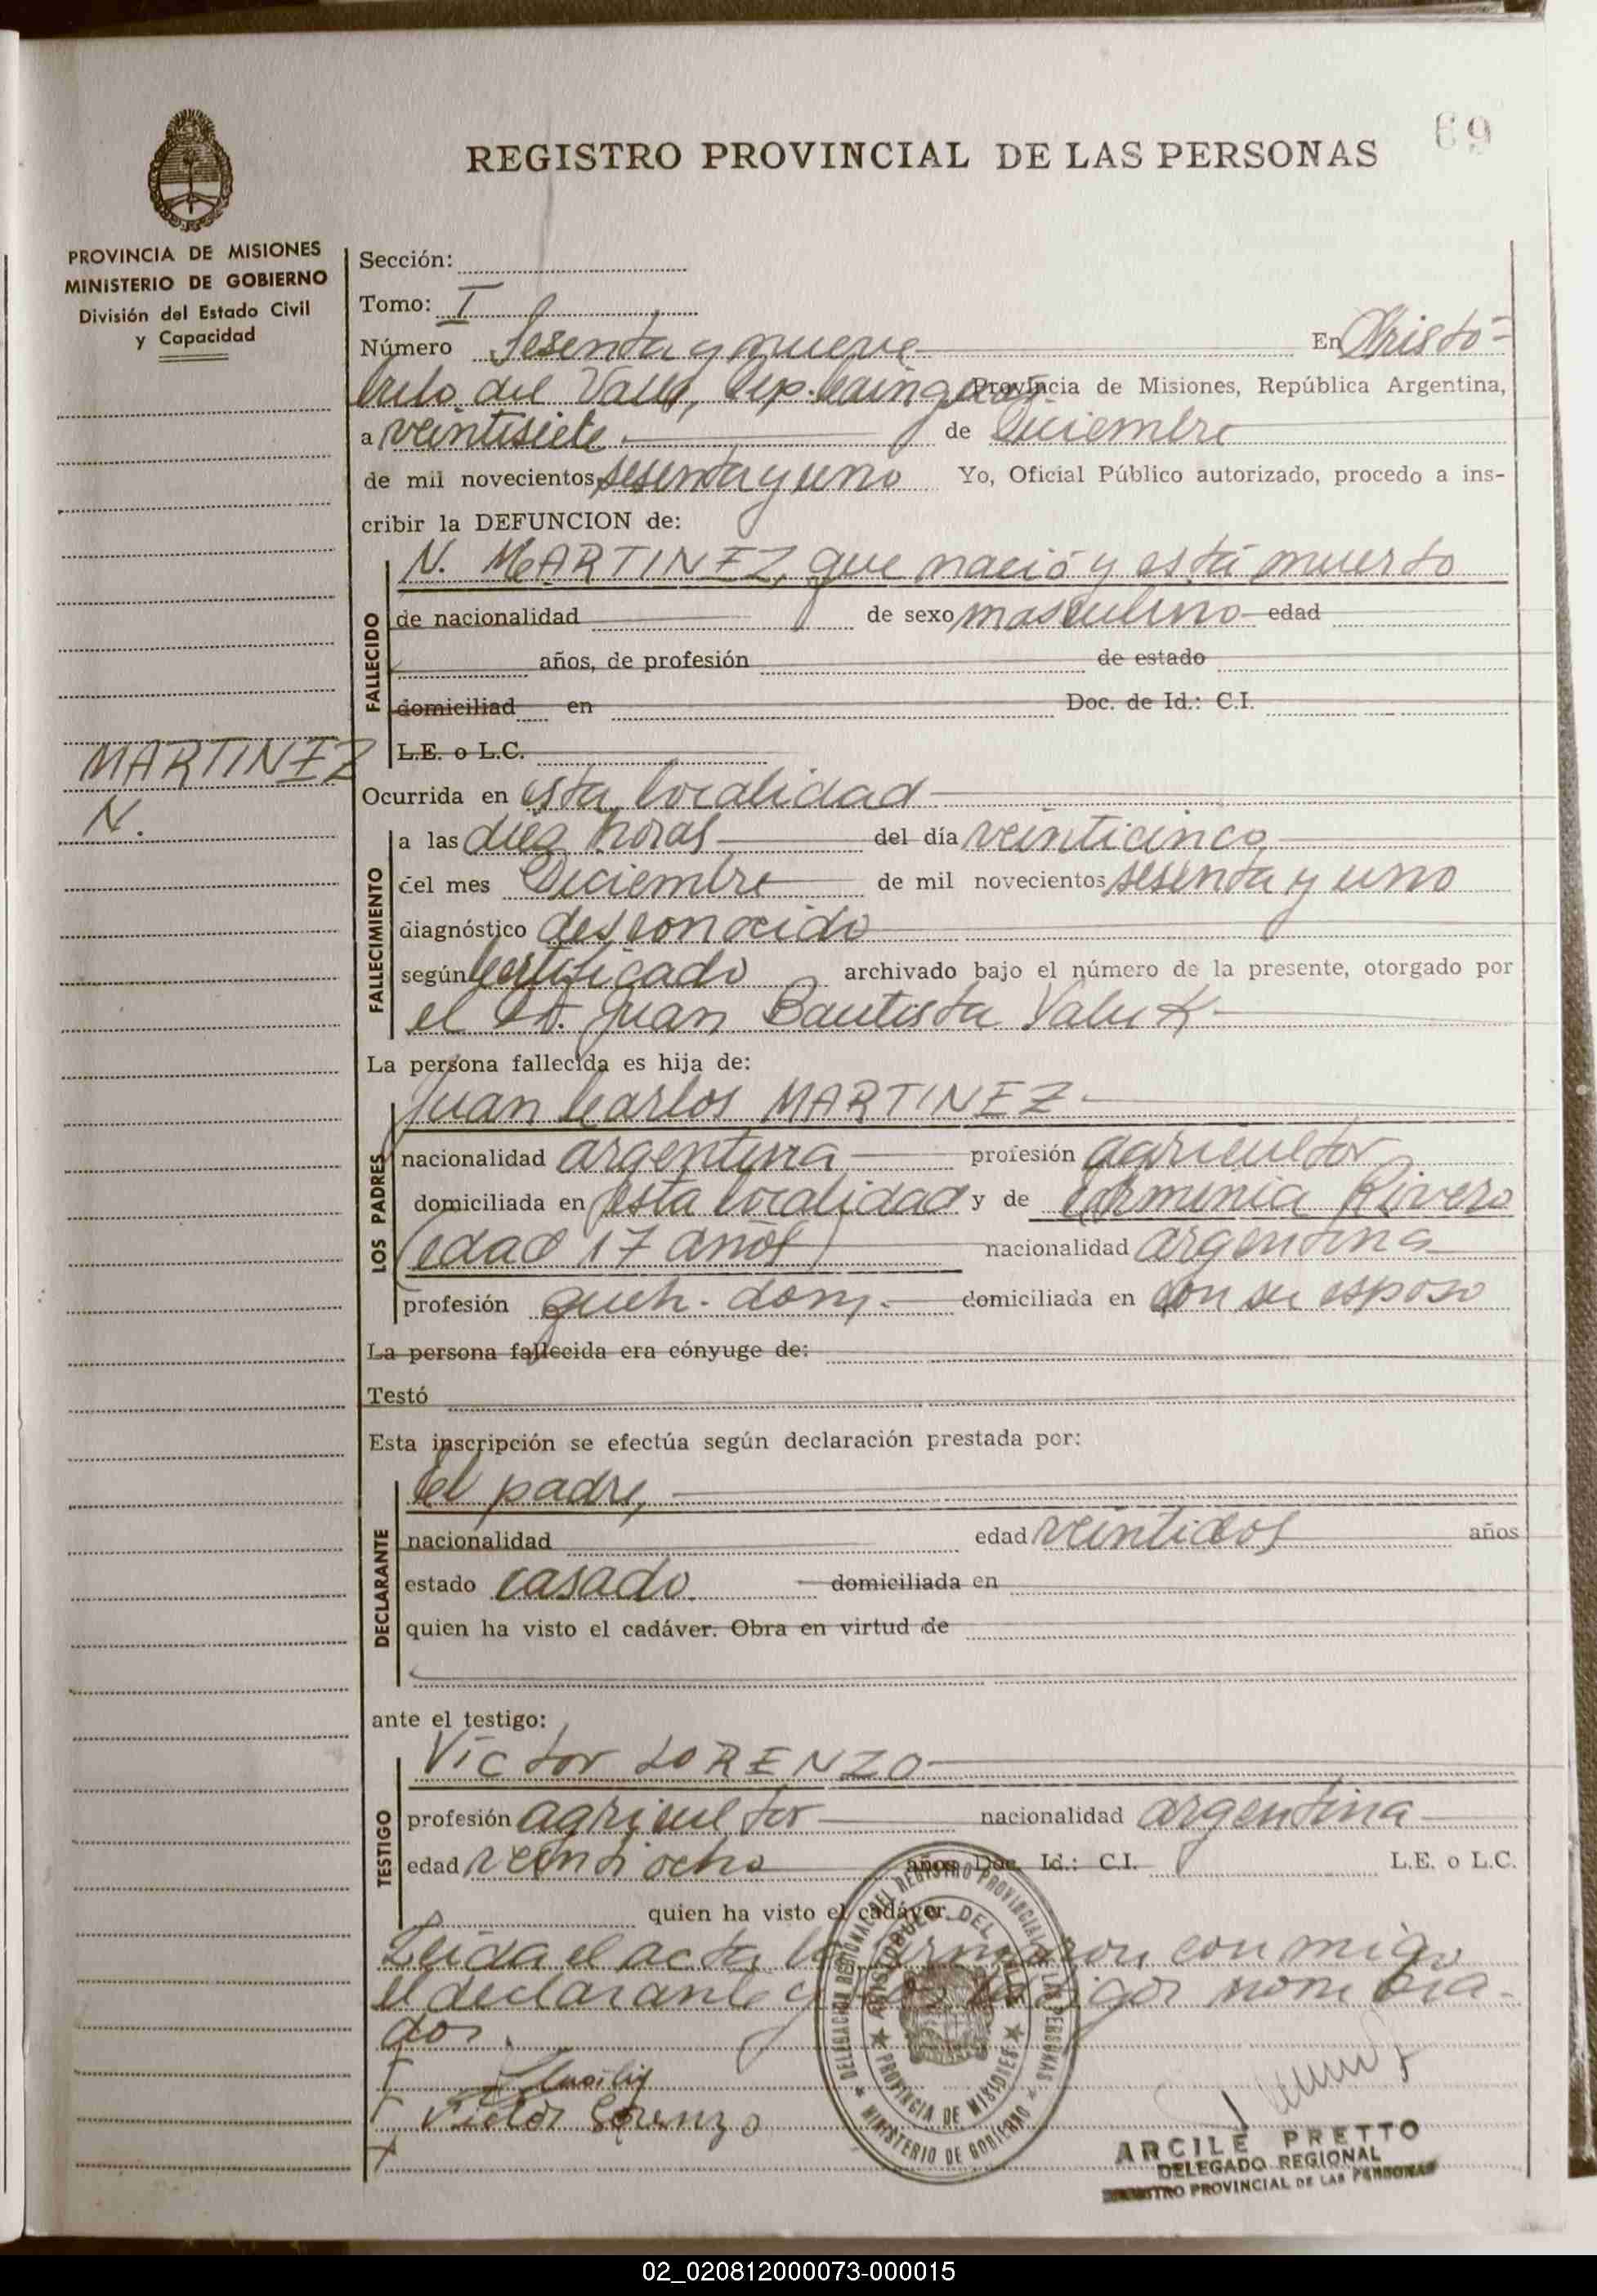 69
REGISTRO PROVINCIAL DE LAS PERSONAS
PROVINCIA DE MISIONES
MINISTERIO DE GOBIERNO
División del Estado Civil
y Capacidad
MARTINEZ
N.
Sección:
Tomo: I
Número Sesenta y nueve En Aristó-
bulo del Valle, Dep. Cainguás Provincia de Misiones, República Argentina,
a veintisiete de Diciembre
de mil novecientos sesenta y uno Yo, Oficial Público autorizado, procedo a ins-
cribir la DEFUNCION de:
FALLECIDO
N. MARTINEZ, que nació y está muerto
de nacionalidad de sexo masculino edad
años, de profesión de estado
domiciliad en Doc. de Id.: C.I.
L.E. o L.C.
Ocurrida en esta localidad
FALLECIMIENTO
a las diez horas del día veinticinco
del mes Diciembre de mil novecientos sesenta y uno
diagnóstico desconocido
según Certificado archivado bajo el número de la presente, otorgado por
el Dr. Juan Bautista
La persona fallecida es hija de:
LOS PADRES
Juan Carlos MARTINEZ
nacionalidad argentina profesión agricultor
domiciliada en esta localidad y de Erminia Rivero
(edad 17 años) nacionalidad argentina
profesión queh. dom. domiciliada en con su esposo
La persona fallecida era cónyuge de:
Testó
Esta inscripción se efectúa según declaración prestada por:
DECLARANTE
el padre,
nacionalidad edad veintidos años
estado casado. domiciliada en
quien ha visto el cadáver. Obra en virtud de
ante el testigo:
TESTIGO
Víctor LORENZO
profesión agricultor nacionalidad argentina
edad veintiocho años Doc. Id.: C.I. L.E. o L.C.
quien ha visto el cadáver.
Leida el acta la firmaron con migo
el declarante y los testigos nombra-
dos.
Victor Lorenzo
DELEGACION REGIONAL DEL REGISTRO PROVINCIAL DE LAS PERSONAS
MINISTERIO DE GOBIERNO
ARISTOBULO DEL VALLE
PROVINCIA DE MISIONES
ARCILE PRETTO
DELEGADO REGIONAL
REGISTRO PROVINCIAL DE LAS PERSONAS
02_020812000073-000015